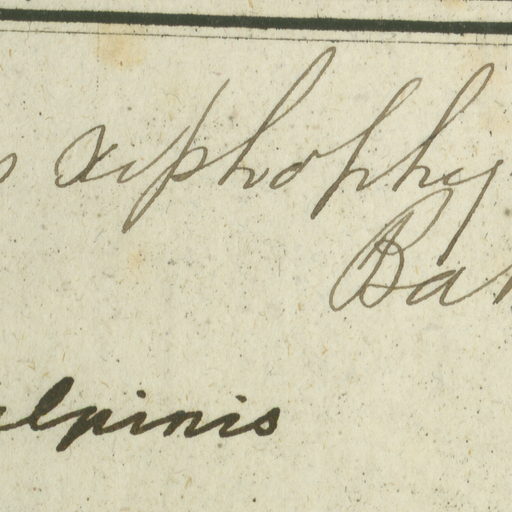 s xiphophy
Bak
alpinis